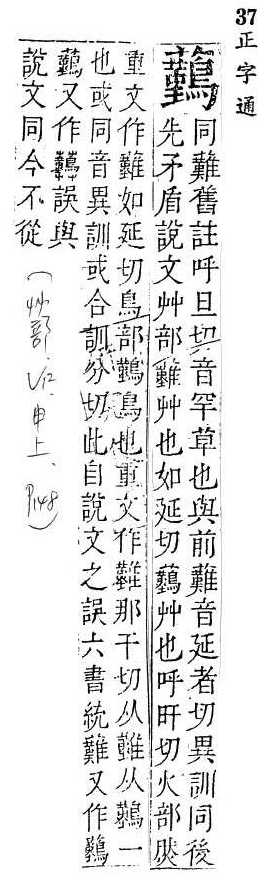 37 正字通
同舊註呼旦切音罕草也與前音延者切異訓同後
先矛盾說文艸部艸也如延切艸也呼旰切火部
重文作如延切鳥部鳥也重文作難那干切从从一
也或同音異訓或合訓分切此自說文之誤六書統又作
又作誤與
說文同今不從
(艸部、申上、P148)